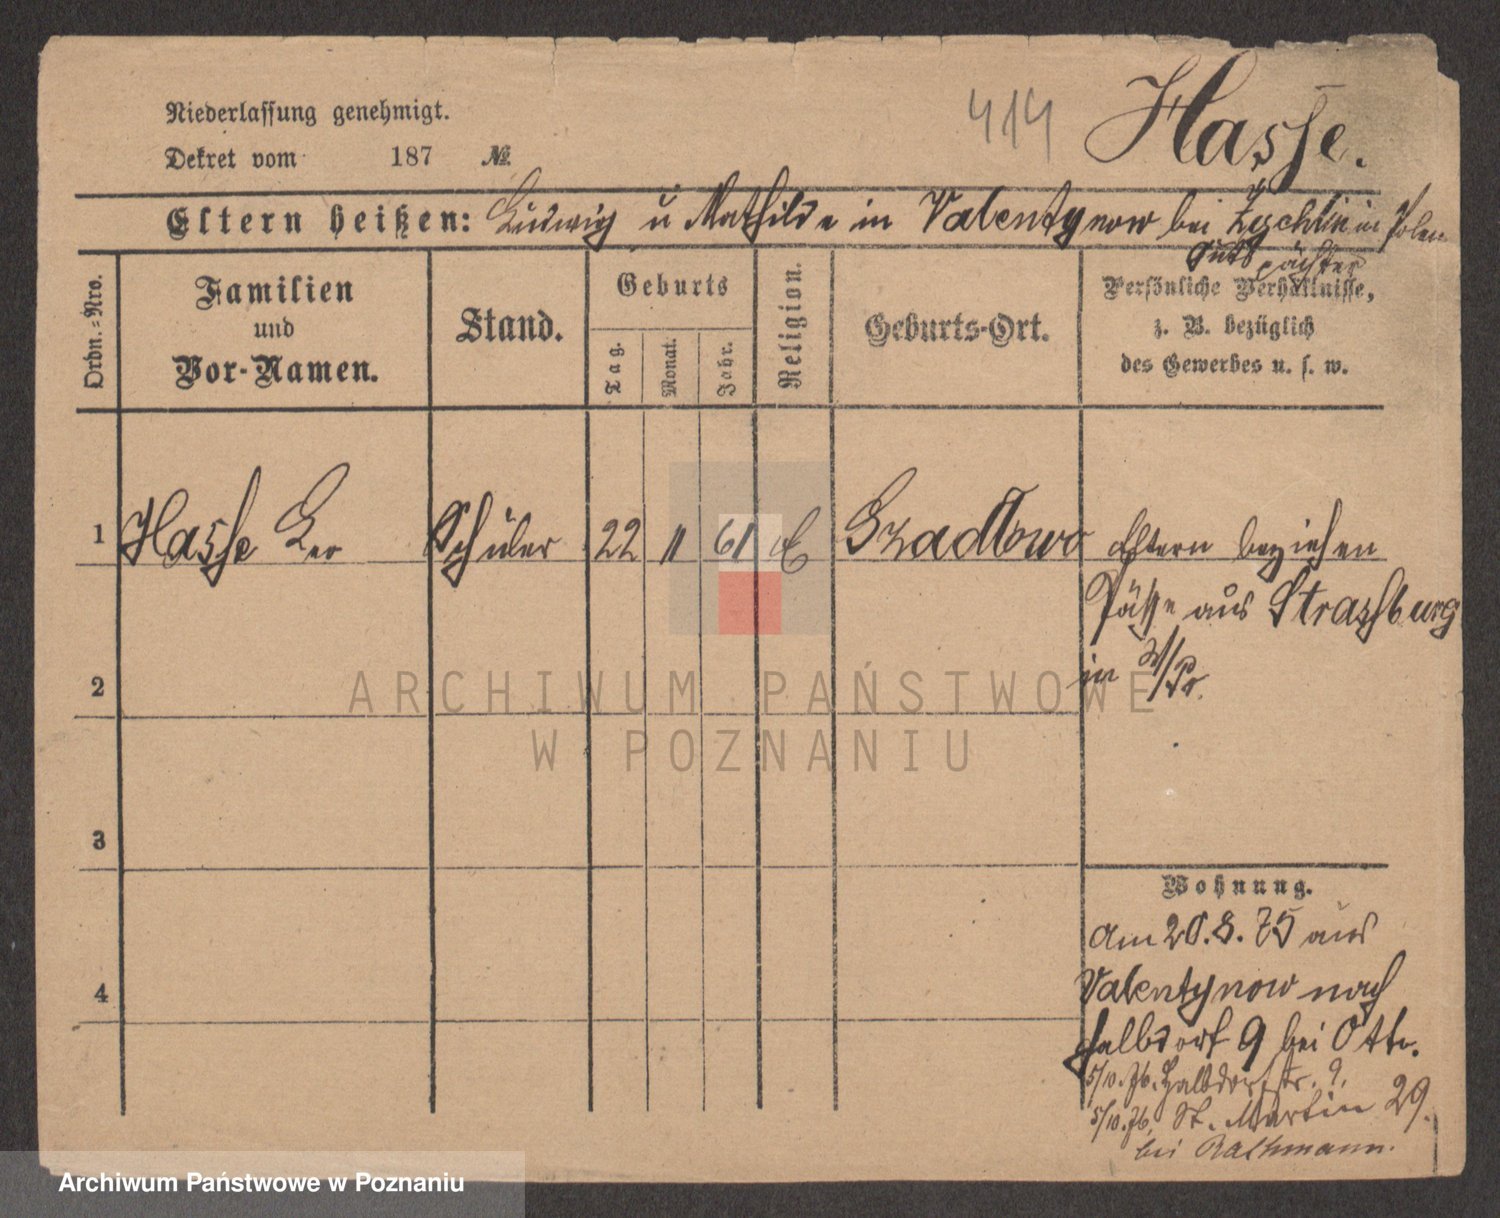 Niederlassung genehmigt.
414 Hasse.
Dekret vom 187 №.
Eltern heißen: Ludwig u Mathilde in Valentynow bei Zychlin in Polen
Guts pächter
Ordn.=Nro.
Familien und Vor-Namen.
Stand.
Geburts
Tag.
Monat.
Jahr.
Religion.
Geburts-Ort.
Persönliche Verhältnisse,
z. B. bezüglich
des Gewerbes u. s. w.
1 Hasse Leo Schüler 22 11 61 Gradowo Eltern beziehen
Pässe aus Strassburg
in W/Pr.
2
ARCHIWUM PAŃSTWOWE
W POZNANIU
3
Wohnung.
am 20. 8. 75 aus
4
Valentynow nach
Halbdorf 9 bei Otto.
5/10. 76. Halbdorfstr. 9.
5/10. 76. St. Martin 29.
bei Rathmann.
Archiwum Państwowe w Poznaniu